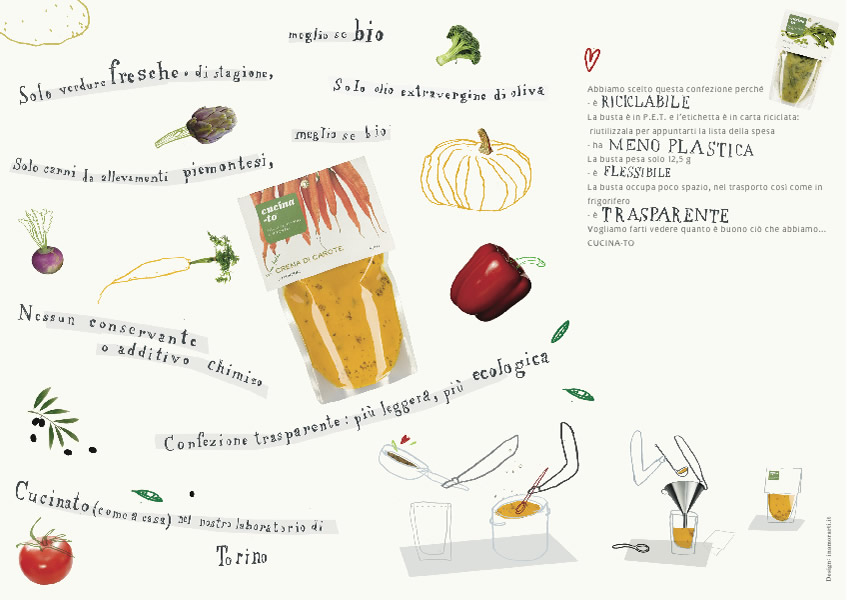 meglio se bio
Solo verdure fresche e di stagione,
Solo olio extravergine di oliva
meglio se bio
Solo carni da allevamenti piemontesi,
cucina
-to
CREMA DI CAROTE
Nessun conservante
o additivo chimico
Confezione trasparente: più leggera, più ecologica
Cucinato (come a casa) nel nostro laboratorio di
Torino
Abbiamo scelto questa confezione perché
- è RICICLABILE
La busta è in P.E.T. e l'etichetta è in carta riciclata:
riutilizzala per appuntarti la lista della spesa
- ha MENO PLASTICA
La busta pesa solo 12,5 g
- è FLESSIBILE
La busta occupa poco spazio, nel trasporto così come in
frigorifero
- è TRASPARENTE
Vogliamo farti vedere quanto è buono ciò che abbiamo...
CUCINA-TO
Design: insmorarti.it